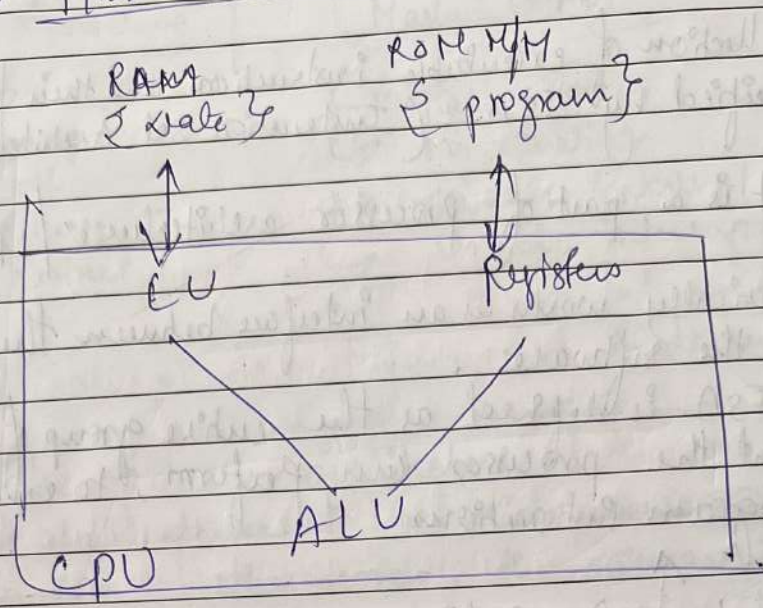 RAM
{ Data }
ROM M/M
{ program }
CU
Registers
ALU
CPU